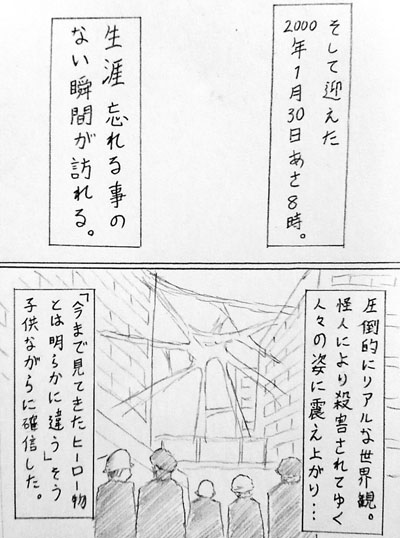 そして迎えた
2000年1月30日あさ8時。
生涯忘れる事の
ない瞬間が訪れる。
圧倒的にリアルな世界観。
怪人により殺害されてゆく
人々の姿に震え上がり…
「今まで見てきたヒーロー物
とは明らかに違う」そう
子供ながらに確信した。